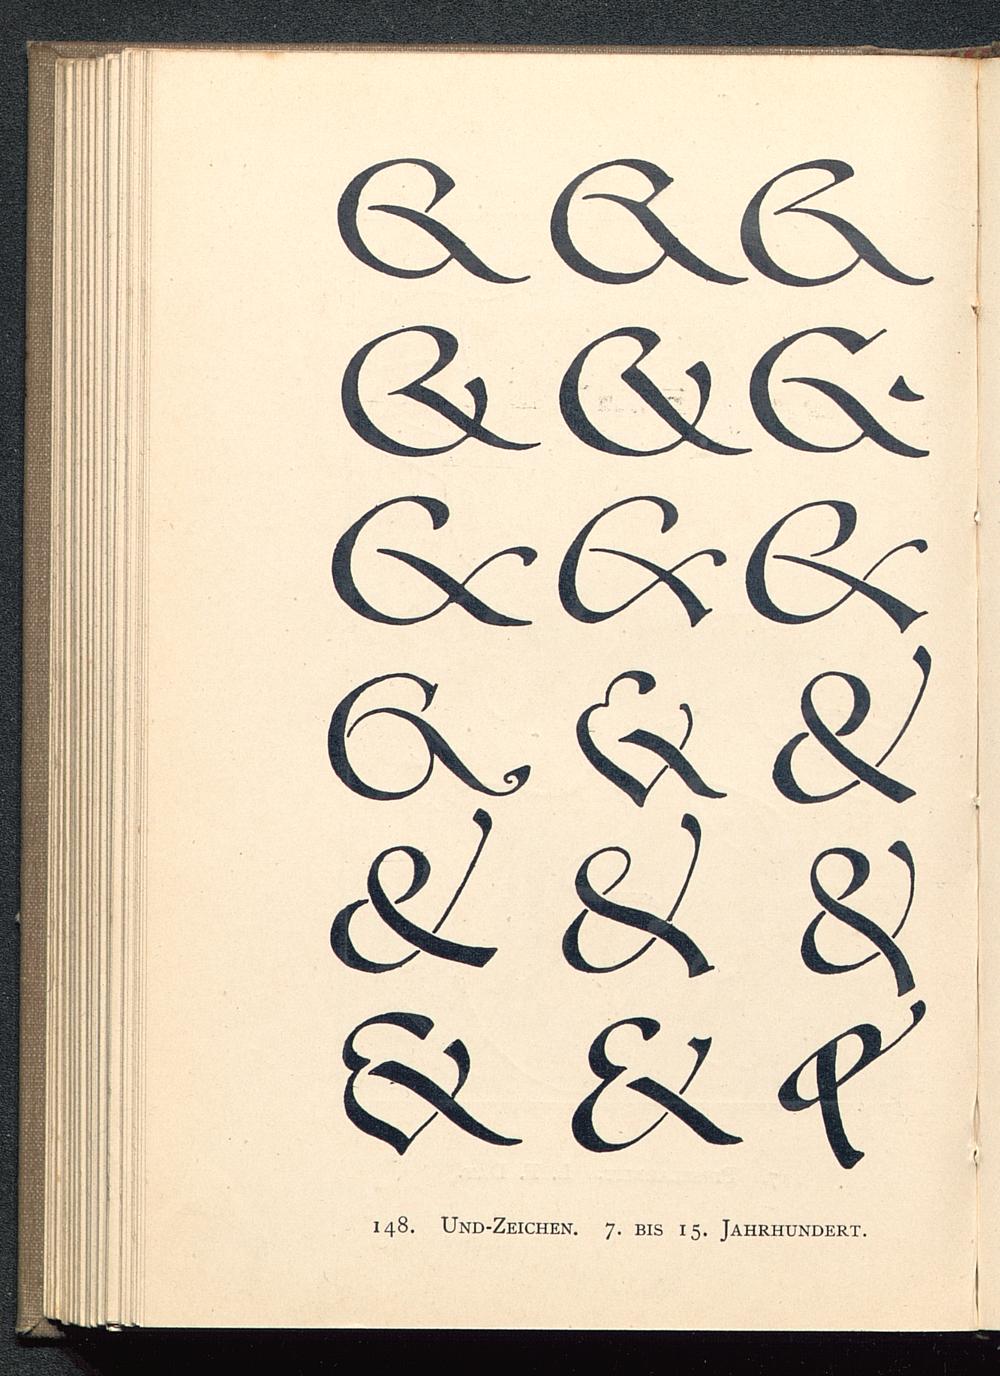 & & &
& & &
& & &
& & &
& & &
& & &
148. Und-Zeichen. 7. bis 15. Jahrhundert.